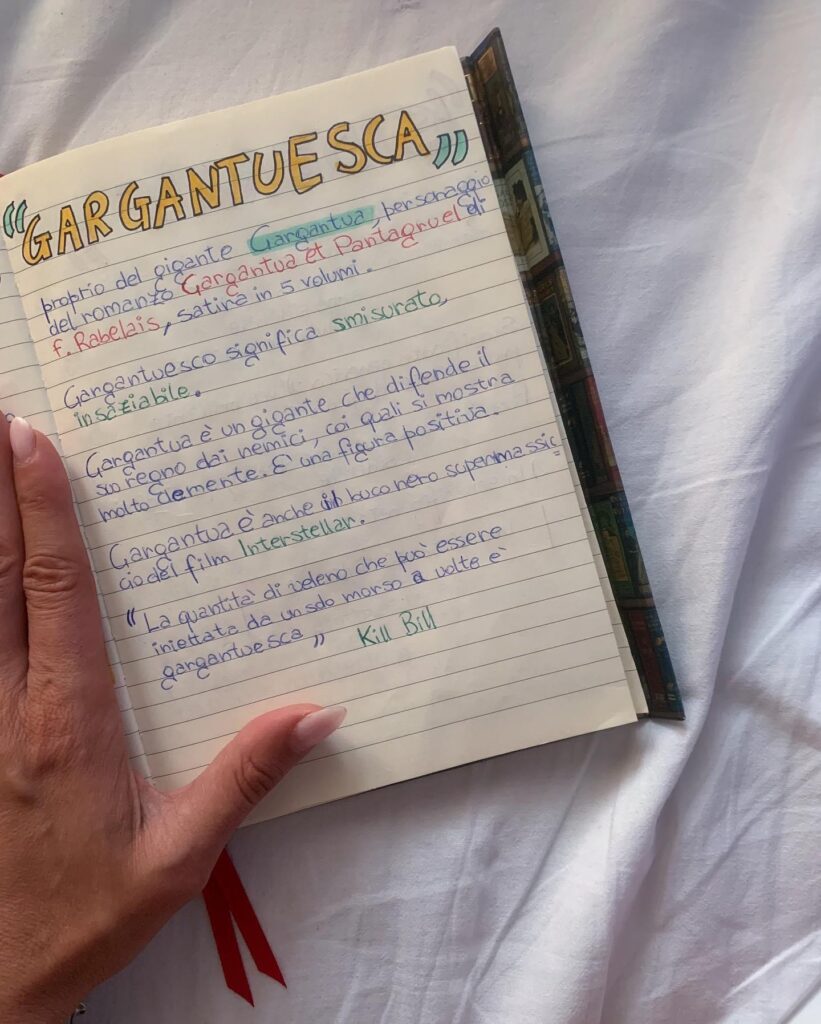 "GARGANTUESCA"
proprio del gigante Gargantua, personaggio
del romanzo Gargantua et Pantagruel di
f. Rabelais, satira in 5 volumi.
Gargantuesco significa smisurato,
insaziabile.
Gargantua è un gigante che difende il
suo regno dai nemici, coi quali si mostra
molto clemente. E' una figura positiva.
Gargantua è anche il buco nero supermassic=
cio del film Interstellar.
"La quantità di veleno che può essere
iniettata da un solo morso a volte è
gargantuesca" Kill Bill